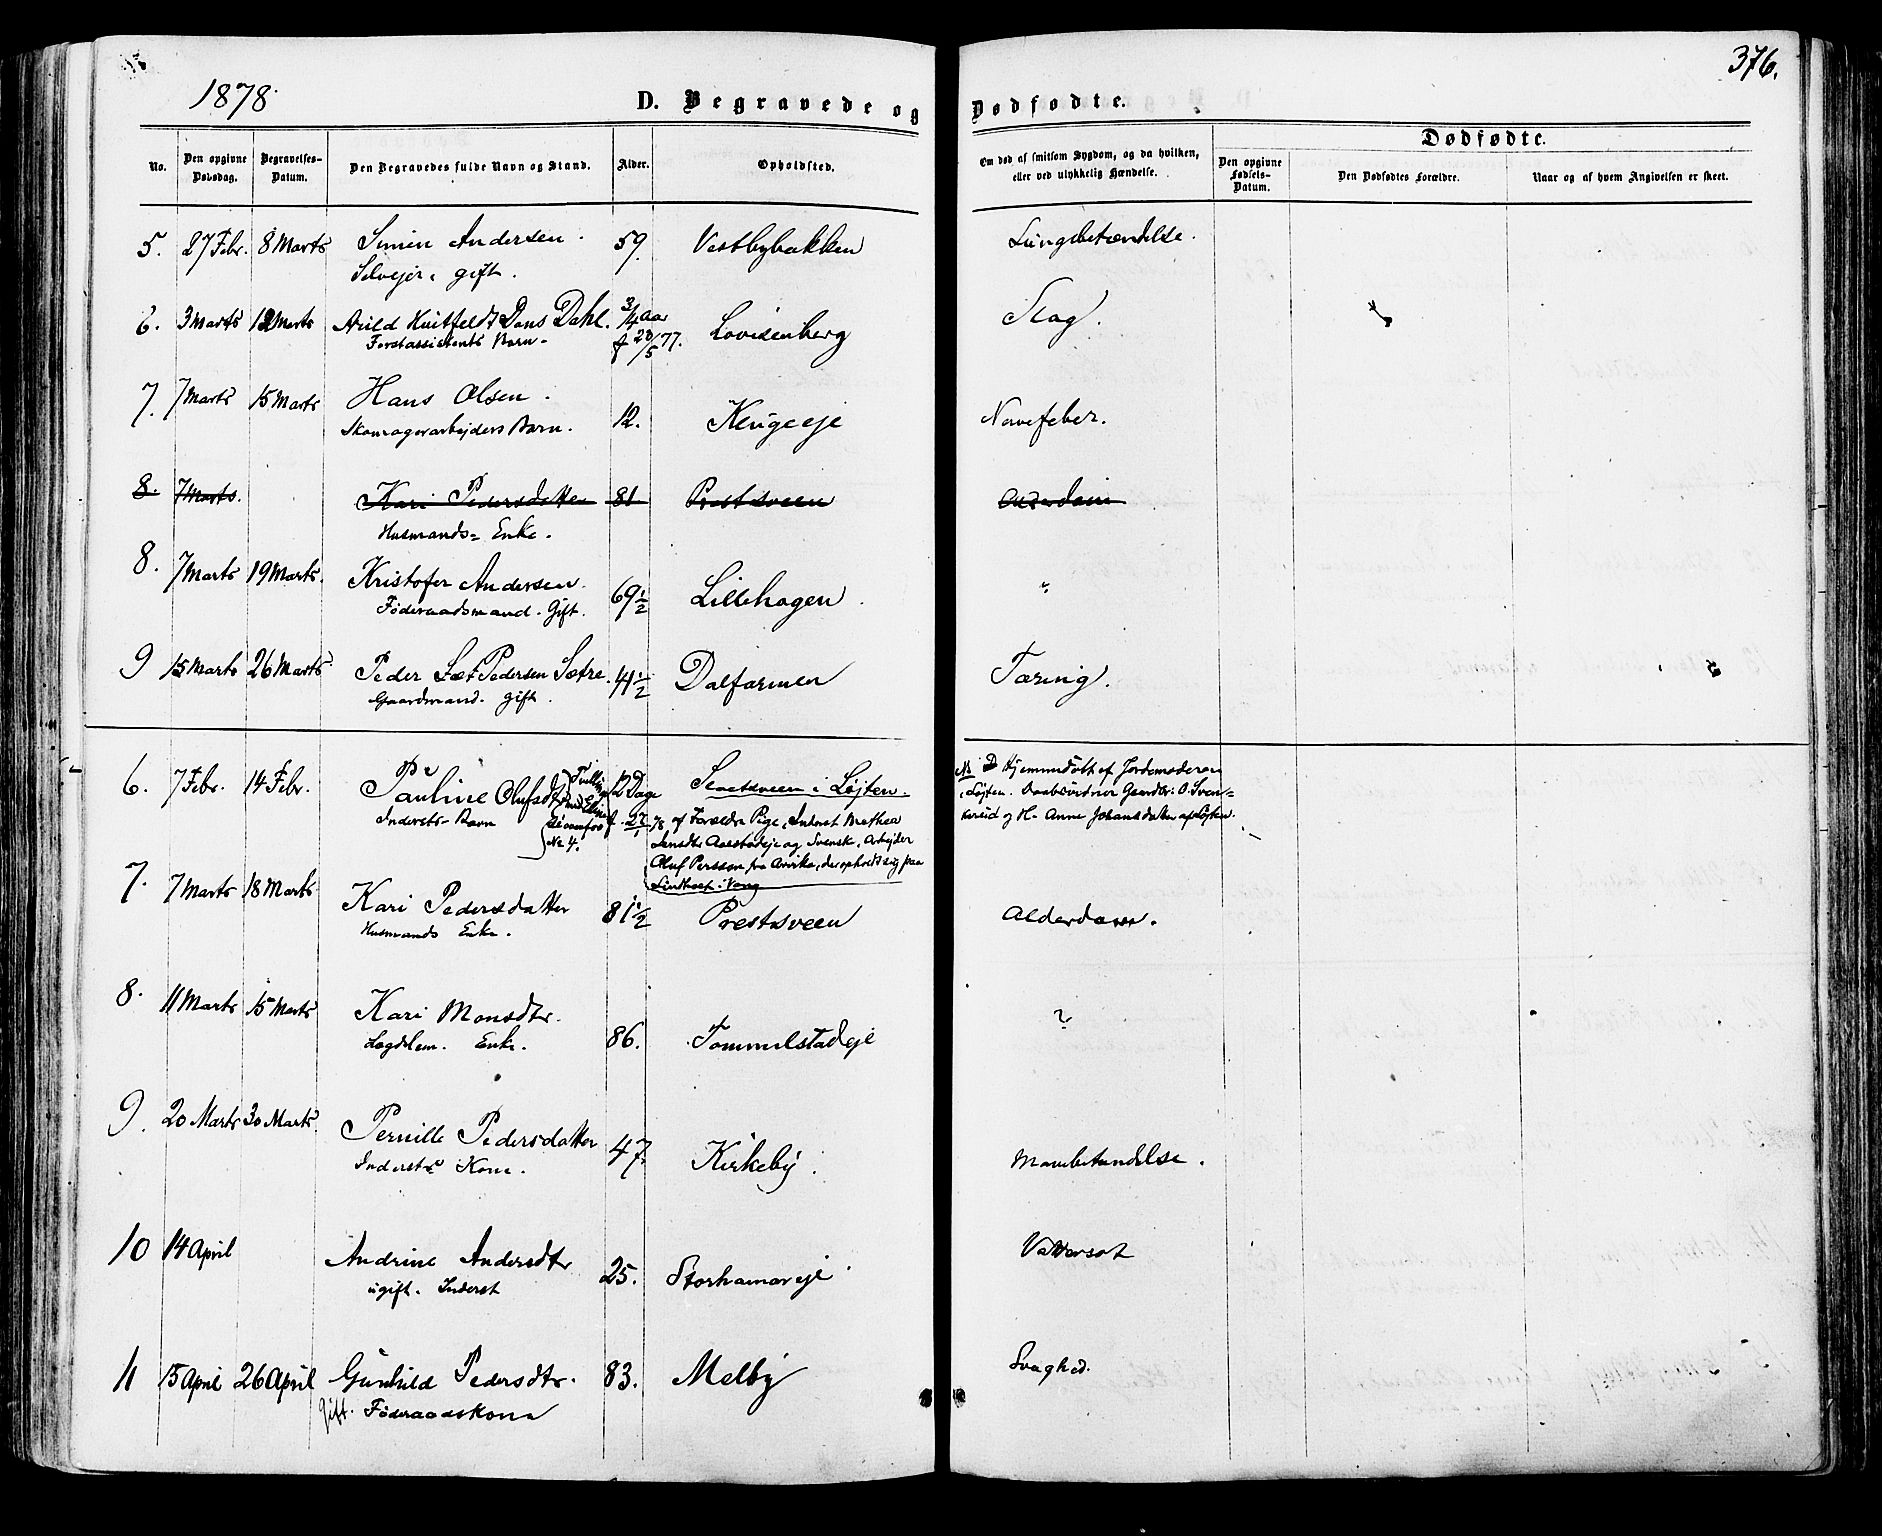 1878.
D. Begravede og Dødfødte.
376.
No.
Den opgivne Dødsdag.
Begravelses-Datum.
Den Begravedes fulde Navn og Stand.
Alder.
Opholdsted.
Om død af smitsom Sygdom, og da hvilken, eller ved ulykkelig Hændelse.
Dødfødte.
Den opgivne Fødsels-Datum.
Den Dødfødtes Forældre.
Naar og af hvem Angivelsen er skeet.
5. 27 Febr. 8 Marts Simen Andersen. 59. Vestbybakken Lungebetændelse.
Selvejer, gift.
6. 3 Marts 12 Marts Arild Huitfeldt Dons Dahl. 3/4 Aar Lovisenberg Slag.
Forstassistents Barn - f 23/5 77.
7. 7 Marts 15 Marts Hans Olsen. 12. Klugeeje Nervefeber.
Skomagerarbejders Barn.
8. 7 Marts. Kari Pedersdatter 81 Prestsveen
Husmands- Enke.
8. 7 Marts 19 Marts. Kristofer Andersen. 69 1/2 Lillehagen. "
Föderaadsmand. Gift.
9 15 Marts 26 Marts Peder Pedersen Sætre. 41 1/2 Dalfarmen Tæring.
Gaardmand. gift.
6. 7 Febr. 14 Febr. Pauline Olufsdtr 12 Dage i Løjten.
Tvilling
No 4.
Indersts Barn
NB Hjemmedøbt af Jordemoderen
i Løjten.
og H. Anne Johansdatter af Løjten.
af Forældre Pige, Inderst Mathea
og Svenske, Arbejder
Oluf Persson fra Arvika, der opholdt sig paa
i Vang
7. 7 Marts 18 Marts Kari Pedersdatter 81 1/2 Prestsveen Alderdom.
Husmands Enke.
8. 11 Marts 15 Marts Kari Monsdtr. 86. Tommelstadeje ?
Lægdslem. Enke.
9. 20 Marts 30 Marts. Pernille Pedersdatter 47. Kirkeby. Mavebetændelse.
Indersts Kone.
10 14 April Andrine Andersdtr 25. Storhamareje Vattersot
ugift. Inderst
11 15 April 26 April Gunhild Pedersdtr. 83. Melby Svaghed.
gift. Föderaadskone